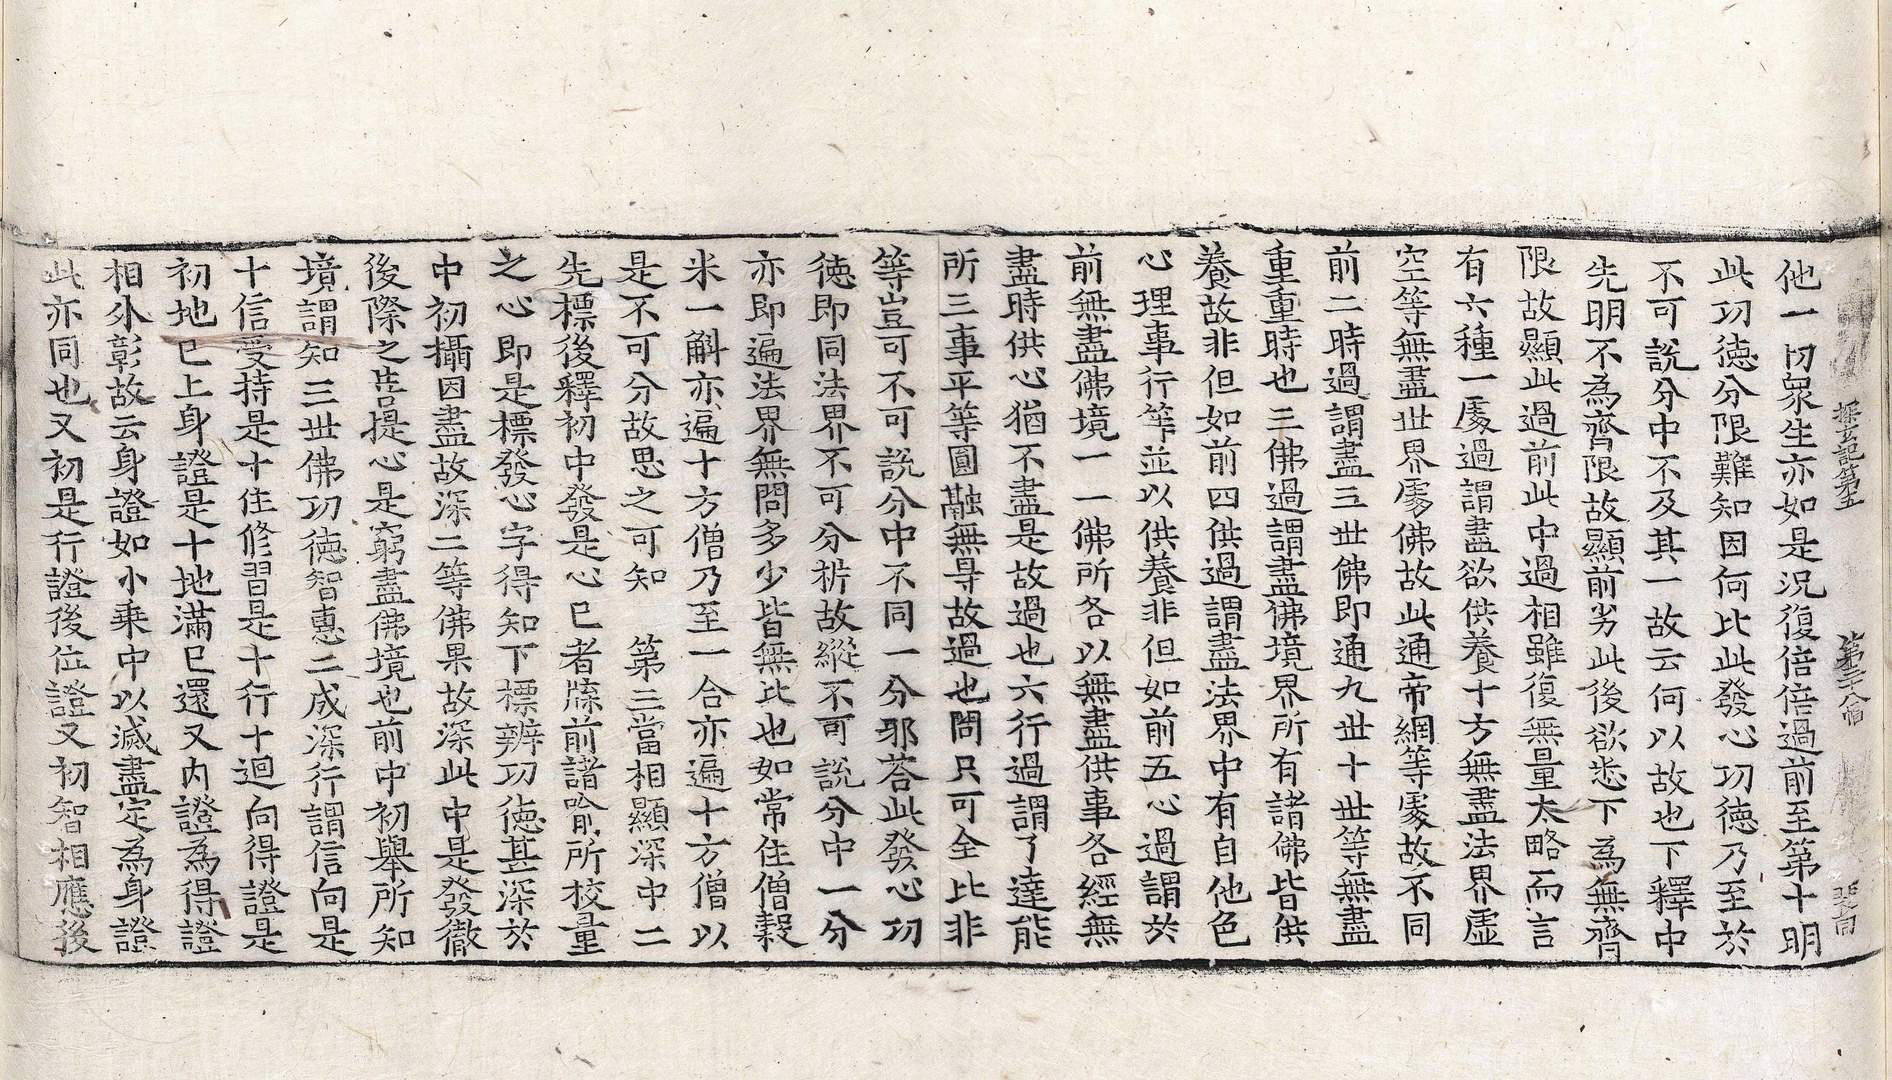 探玄記第五
他一切衆生亦如是況復倍倍過前至第十明
此功徳分限難知因何比此發心功徳乃至於
不可說分中不及其一故云何以故也下釋中
先明不為齊限故顯前劣此後欲悉下為無齊
限故顯此過前此中過相雖復無量太略而言
有六種一處過謂盡欲供養十方無盡法界虛
空等無盡世界處佛故此通帝網等處故不同
前二時過謂盡三世佛即通九世十世等無盡
重重時也三佛過謂盡佛境界所有諸佛皆供
養故非但如前四供過謂盡法界中有自他色
心理事行等並以供養非但如前五心過謂於
前無盡佛境一一佛所各以無盡供事各經無
盡時供心猶不盡是故過也六行過謂了達能
所三事平等圓融無㝵故過也問只可全比非
等豈可不可說分中不同一分耶荅此發心功
徳即同法界不可分析故縱不可說分中一分
亦即遍法界無問多少皆無比也如常住僧穀
米一斛亦遍十方僧乃至一合亦遍十方僧以
是不可分故思之可知　第三當相顯深中二
先標後釋初中發是心已者牒前諸喻所校量
之心即是標發心字得知下標辨功徳甚深於
中初攝因盡故深二等佛果故深此中是發徹
後際之菩提心是窮盡佛境也前中初舉所知
境謂知三世佛功徳智惠二成深行謂信向是
十信受持是十住修習是十行十迴向得證是
初地已上身證是十地滿已還又内證為得證
相外彰故云身證如小乗中以滅盡定為身證
此亦同也又初是行證後位證又初智相應後